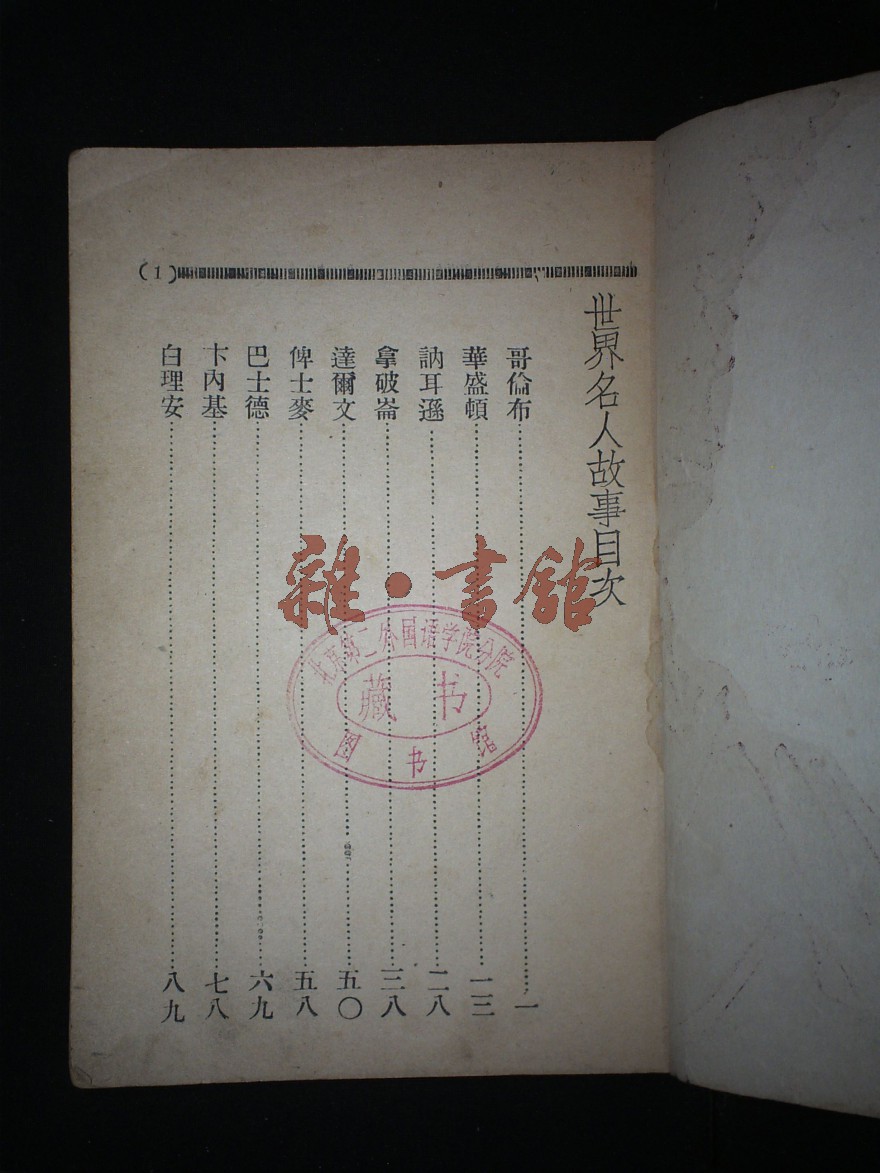 (1)
世界名人故事目次
哥倫布……一
華盛頓……一三
訥耳遜……二八
拿破崙……三八
達爾文……五〇
俾士麥……五八
巴士德……六九
卞內基……七八
白理安……八九
雜·書館
北京第二外国语学院分院
藏书
图书馆